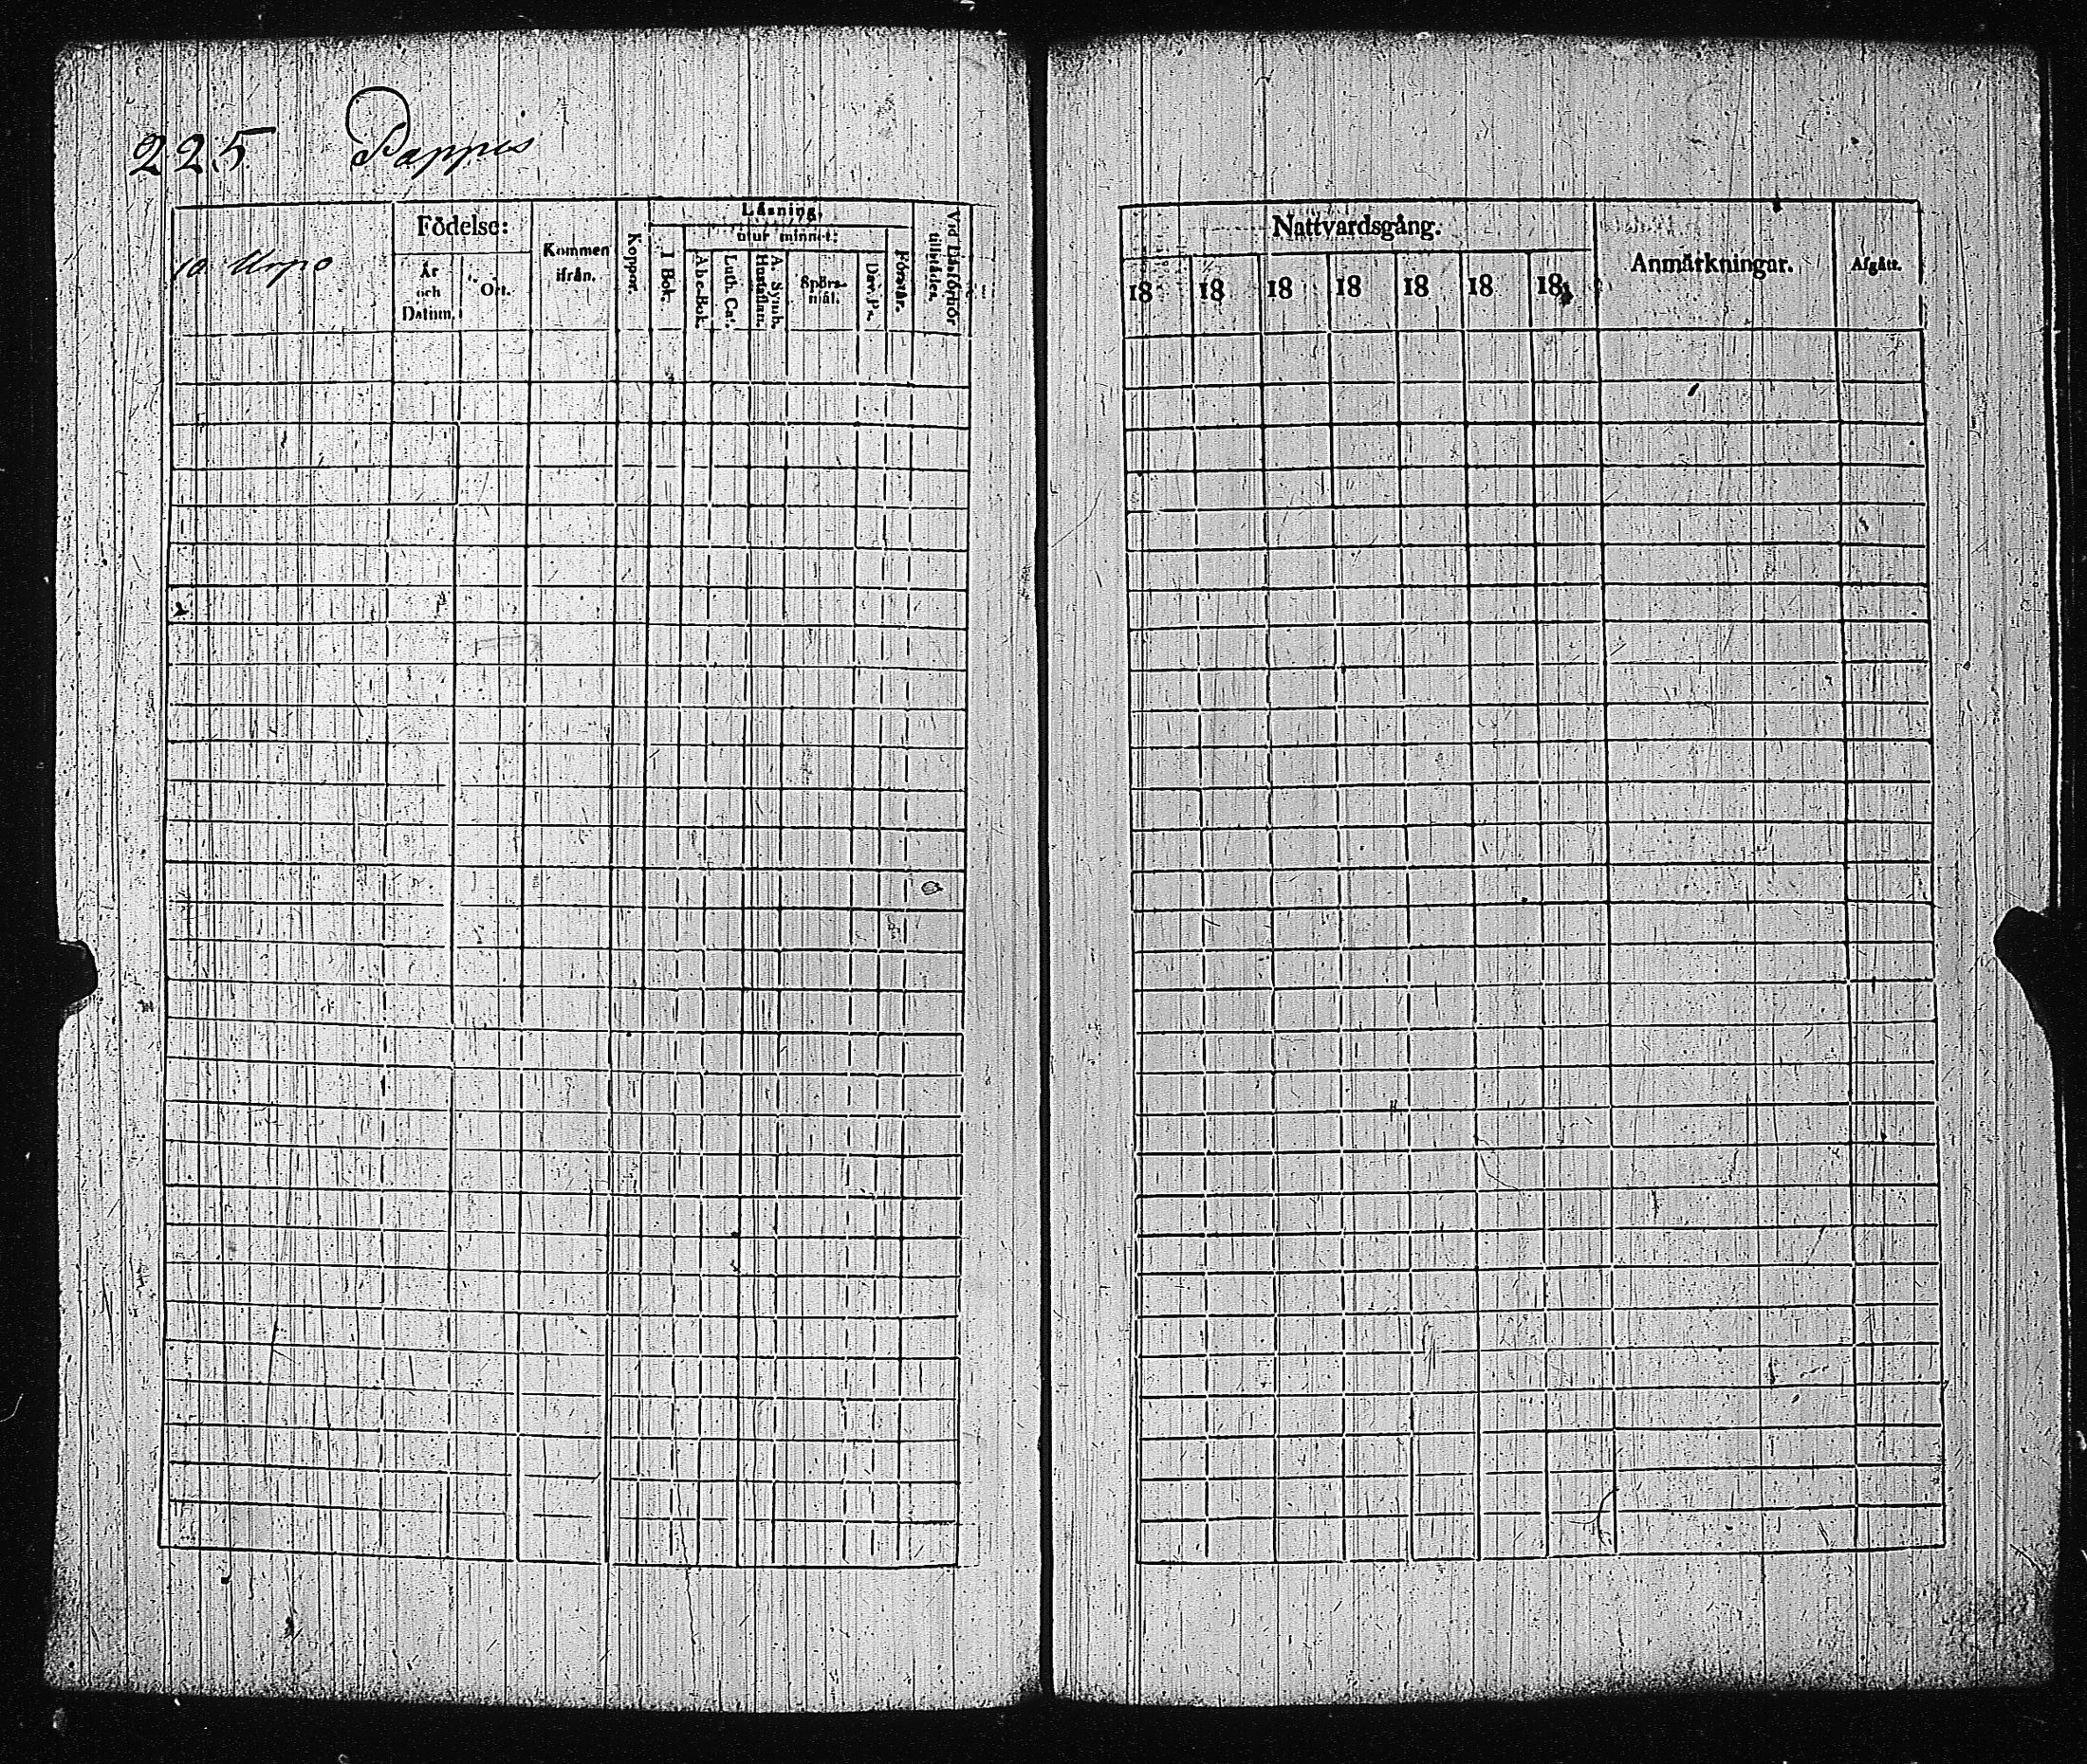 225 Pappis
Födelse:
Kommen ifrån.
Koppor.
Läsning,
utur minnet:
I Bok.
A b c-Bok.
Luth. Cat.
A. Symb. Hustaflan.
Spörsmål.
Dav. Ps.
Förstår.
Vid Läsförhör tillstädes.
År och Datum.
Ort.
Nattvardsgång.
18 18 18 18 18 18 18
Anmärkningar.
Afgått.